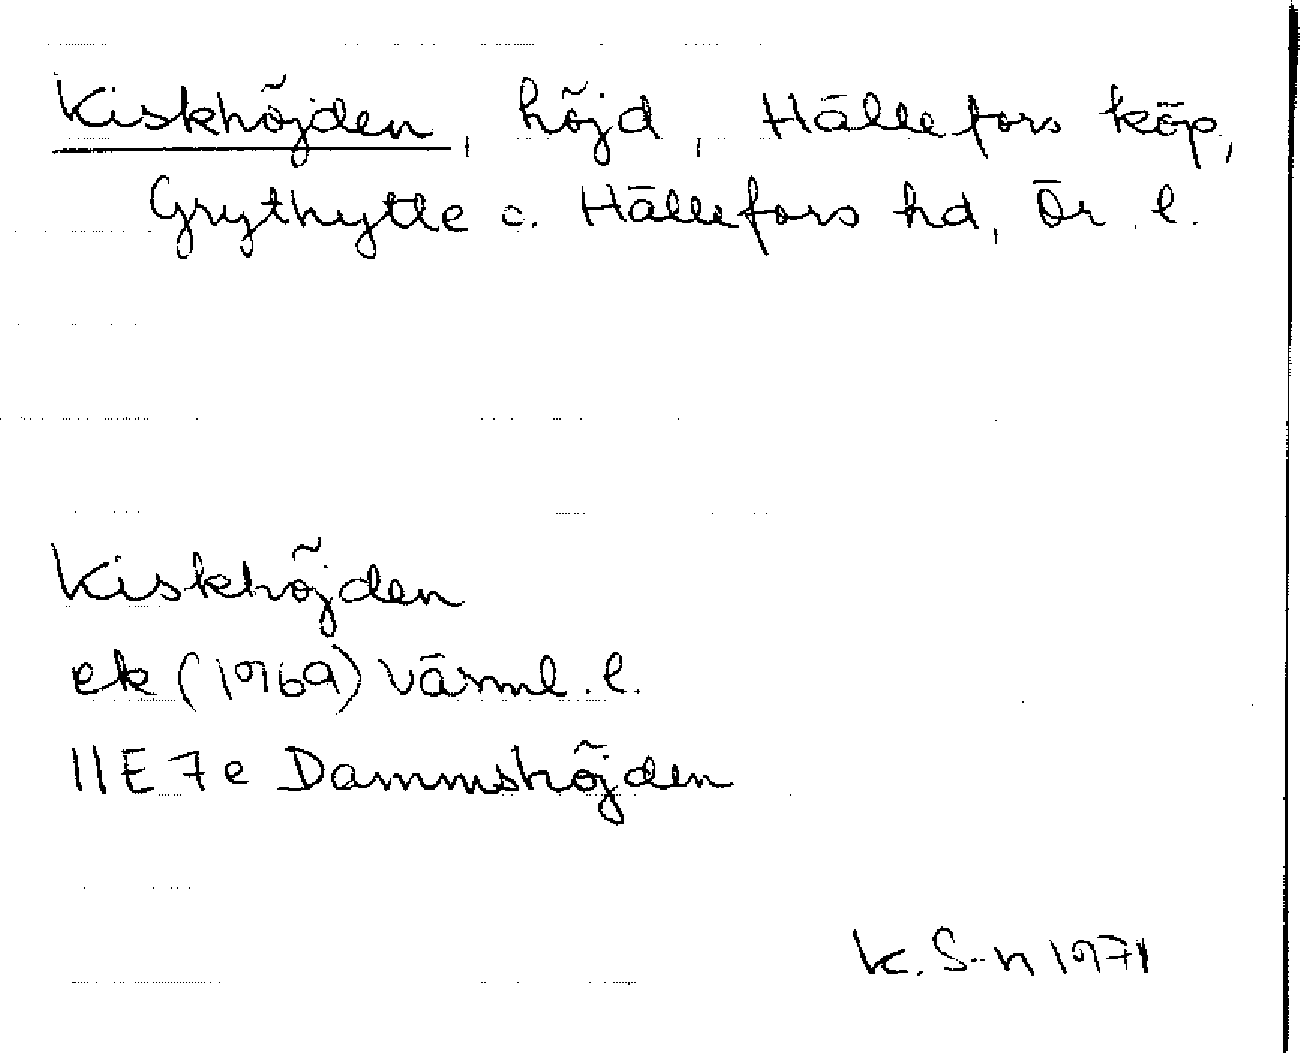 Kiskhöjden, höjd, Hällefors köp,
Grythytte o. Hällefors hd, Ör. l.
Kiskhöjden
ek (1969) Värml. l.
11E 7e Dammshöjden
K. S-n 1971